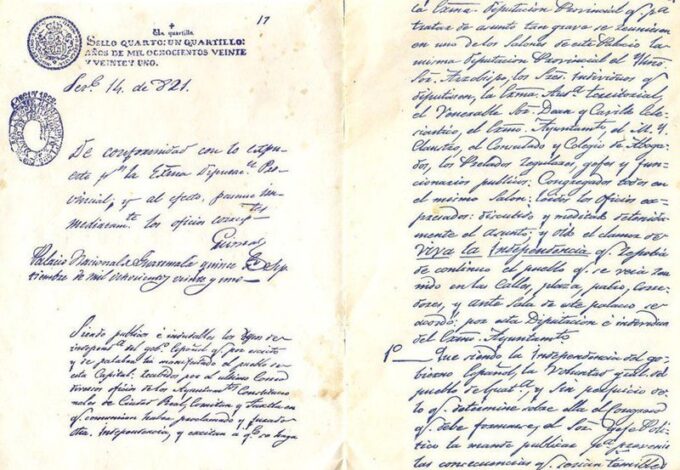 17
Un quartillo
SELLO QUARTO: UN QUARTILLO:
AÑOS DE MIL OCHOCIENTOS VEINTE
Y VEINTE Y UNO.
14. de 821.
De conformidad con lo expu-
esto pr. la Exma Diputac.e Pro-
vincial; y al efecto, pasense in-
mediatamte. los oficios
Palacio Nacional de Guatemala quince de Sep-
tiembre de mil ochocientos veinte y uno
Siendo publicos é indudables los deseos de
independ.a del gob.o Español qe. por escrito
y de palabra ha manifestado el pueblo de
esta Capital: recibidos por el ultimo Correo
diversos oficios de los Ayuntamtos. Constitucio-
nales de Ciudad Real, Comitan y Tuxtla en
qe. comunican haber proclamado y jurado
dha. independencia, y excitan a qe. se haga
la Exma. Diputacion Provincial qe. pa.
tratar de asunto tan grave se reuniesen
en uno de los Salones de este Palacio la
misma Diputacion Provincial el Yllmo.
Sor. Arzobispo, los Sres. Individuos qe.
diputasen, la Exma. Auda. territorial,
el Venerable Sor. Dean y Cavildo Ecle-
siastico, el Exmo. Ayuntamto., el M. Y.
Claustro, el Consulado y Colegio de Aboga-
dos, los Prelados regulares, gefes y fun-
cionarios publicos: Congregados todos en
el mismo Salon: leidos los oficios ex-
presados: discutido y meditado detenida-
mente el asunto; y oido el clamor de
Viva la Independencia qe. repetia
de continuo el pueblo qe. se veia reu-
nido en las calles, plaza, patio, corre-
dores, y ante sala de este palacio se
acordó: por esta Diputacion é individuos
del Exmo. Ayuntamto.
1o. — Que siendo la Independencia del go-
bierno Español, la voluntad gral. del
pueblo de Guata. y sin perjuicio de
lo qe. determine sobre ella el Congreso
qe. debe formarse, el Sor. Gefe Polí-
tico la mande publicar pa. prevenir
las consecuencias qe. serian temibles